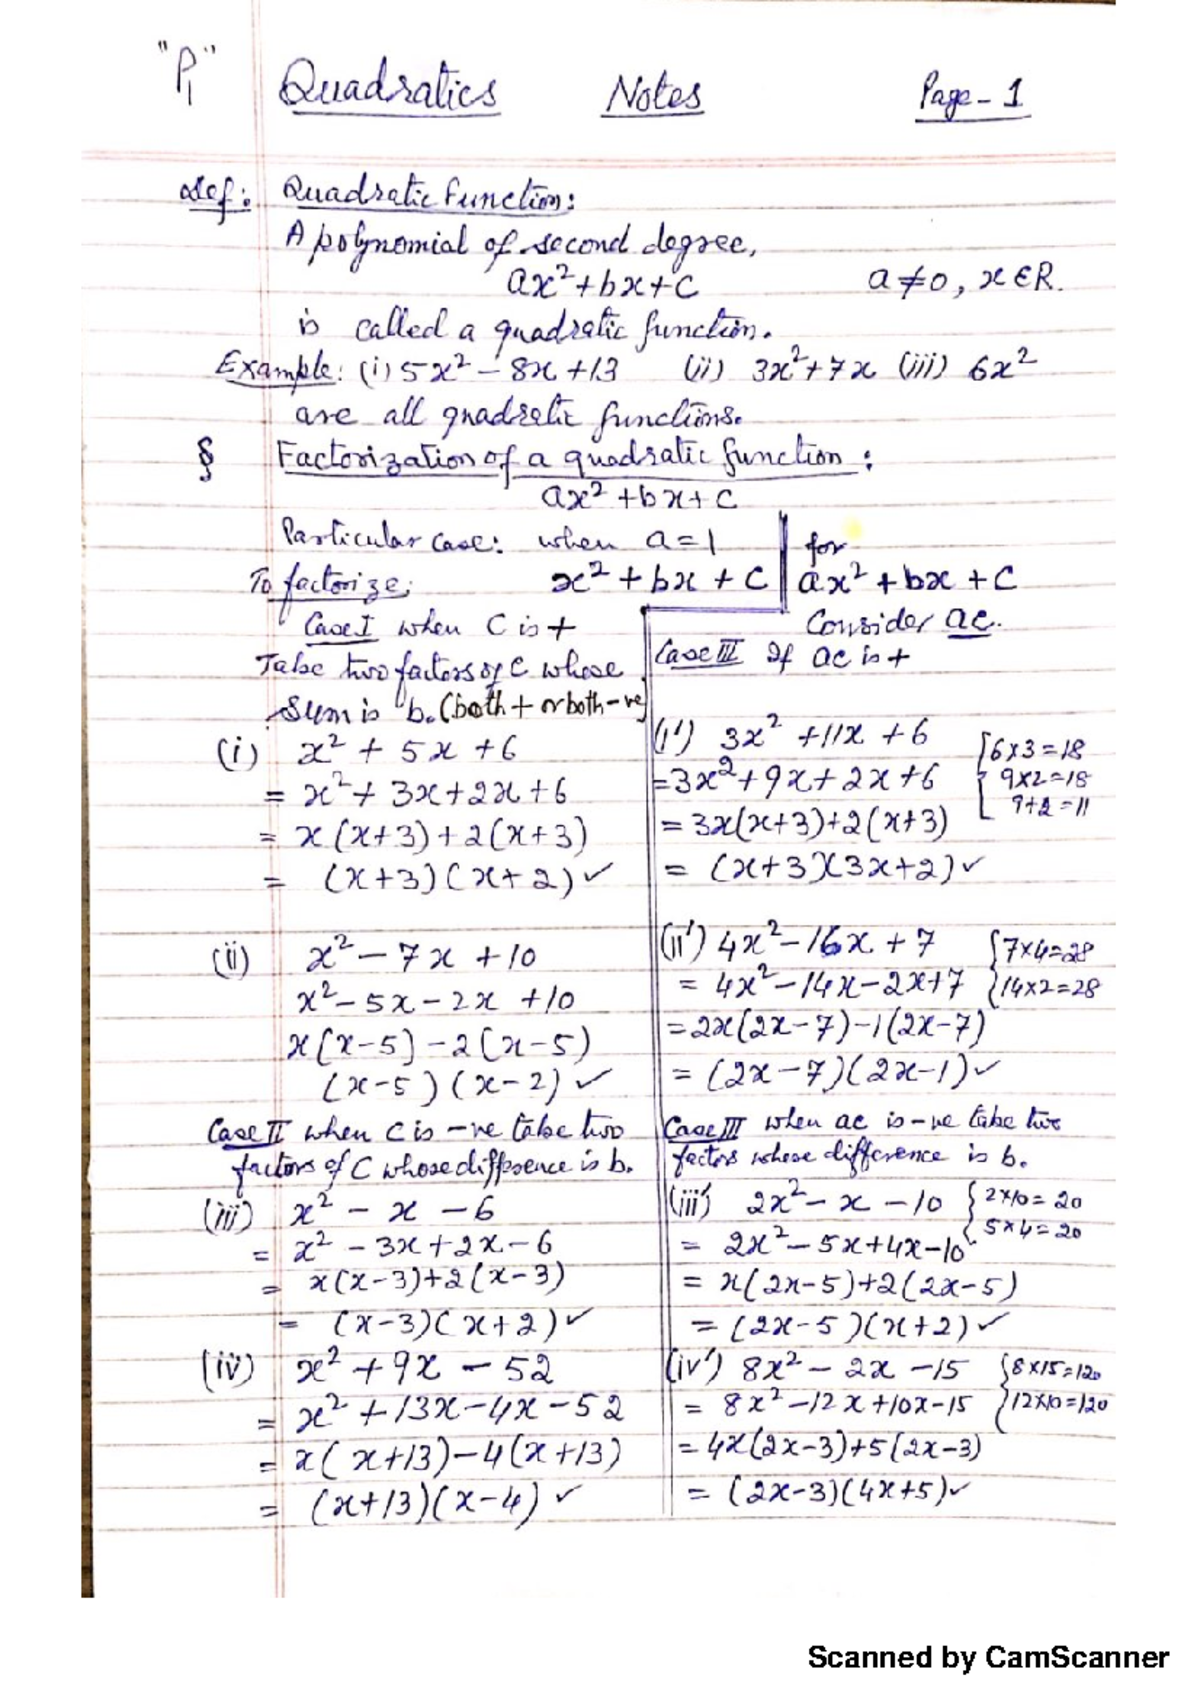 "P1" Quadratics Notes Page-1
Def: Quadratic Function:
A polynomial of second degree,
ax² + bx + c a ≠ 0, x ∈ R.
is called a quadratic function.
Example: (i) 5x² - 8x + 13 (ii) 3x² + 7x (iii) 6x²
are all quadratic functions.
§ Factorization of a quadratic function:
ax² + bx + c
Particular case: when a = 1
To factorize: x² + bx + c
Case I when C is +
Take two factors of C whose
Sum is b. (both + or both -ve)
(i) x² + 5x + 6
= x² + 3x + 2x + 6
= x(x+3) + 2(x+3)
= (x+3)(x+2) ✓
(ii) x² - 7x + 10
x² - 5x - 2x + 10
x(x-5) - 2(x-5)
(x-5)(x-2) ✓
Case II when C is -ve take two
factors of C whose difference is b.
(iii) x² - x - 6
= x² - 3x + 2x - 6
= x(x-3) + 2(x-3)
= (x-3)(x+2) ✓
(iv) x² + 9x - 52
= x² + 13x - 4x - 52
= x(x+13) - 4(x+13)
= (x+13)(x-4) ✓
for
ax² + bx + c
Consider ac.
Case III If ac is +
(i') 3x² + 11x + 6 { 6×3=18
= 3x² + 9x + 2x + 6 9×2=18
9+2=11
= 3x(x+3) + 2(x+3)
= (x+3)(3x+2) ✓
(ii') 4x² - 16x + 7 { 7×4=28
= 4x² - 14x - 2x + 7 14×2=28
= 2x(2x-7) - 1(2x-7)
= (2x-7)(2x-1) ✓
Case III when ac is -ve take two
factors whose difference is b.
(iii') 2x² - x - 10 { 2×10=20
5×4=20
= 2x² - 5x + 4x - 10
= x(2x-5) + 2(2x-5)
= (2x-5)(x+2) ✓
(iv') 8x² - 2x - 15 { 8×15=120
= 8x² - 12x + 10x - 15 12×10=120
= 4x(2x-3) + 5(2x-3)
= (2x-3)(4x+5) ✓
Scanned by CamScanner